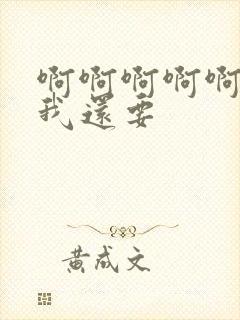 啊啊啊啊啊
我還要
黄成文